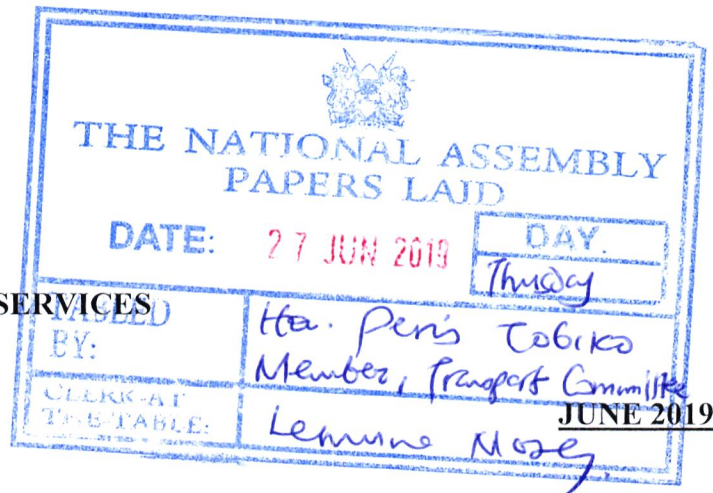 THE NATIONAL ASSEMBLY
PAPERS LAID
DATE: 27 JUN 2019
DAY.
Thursday
SERVICES
TABLED
BY:
Hon. Peris Tobiko
Member, Transport Committee
CLERK-AT
THE-TABLE:
JUNE 2019